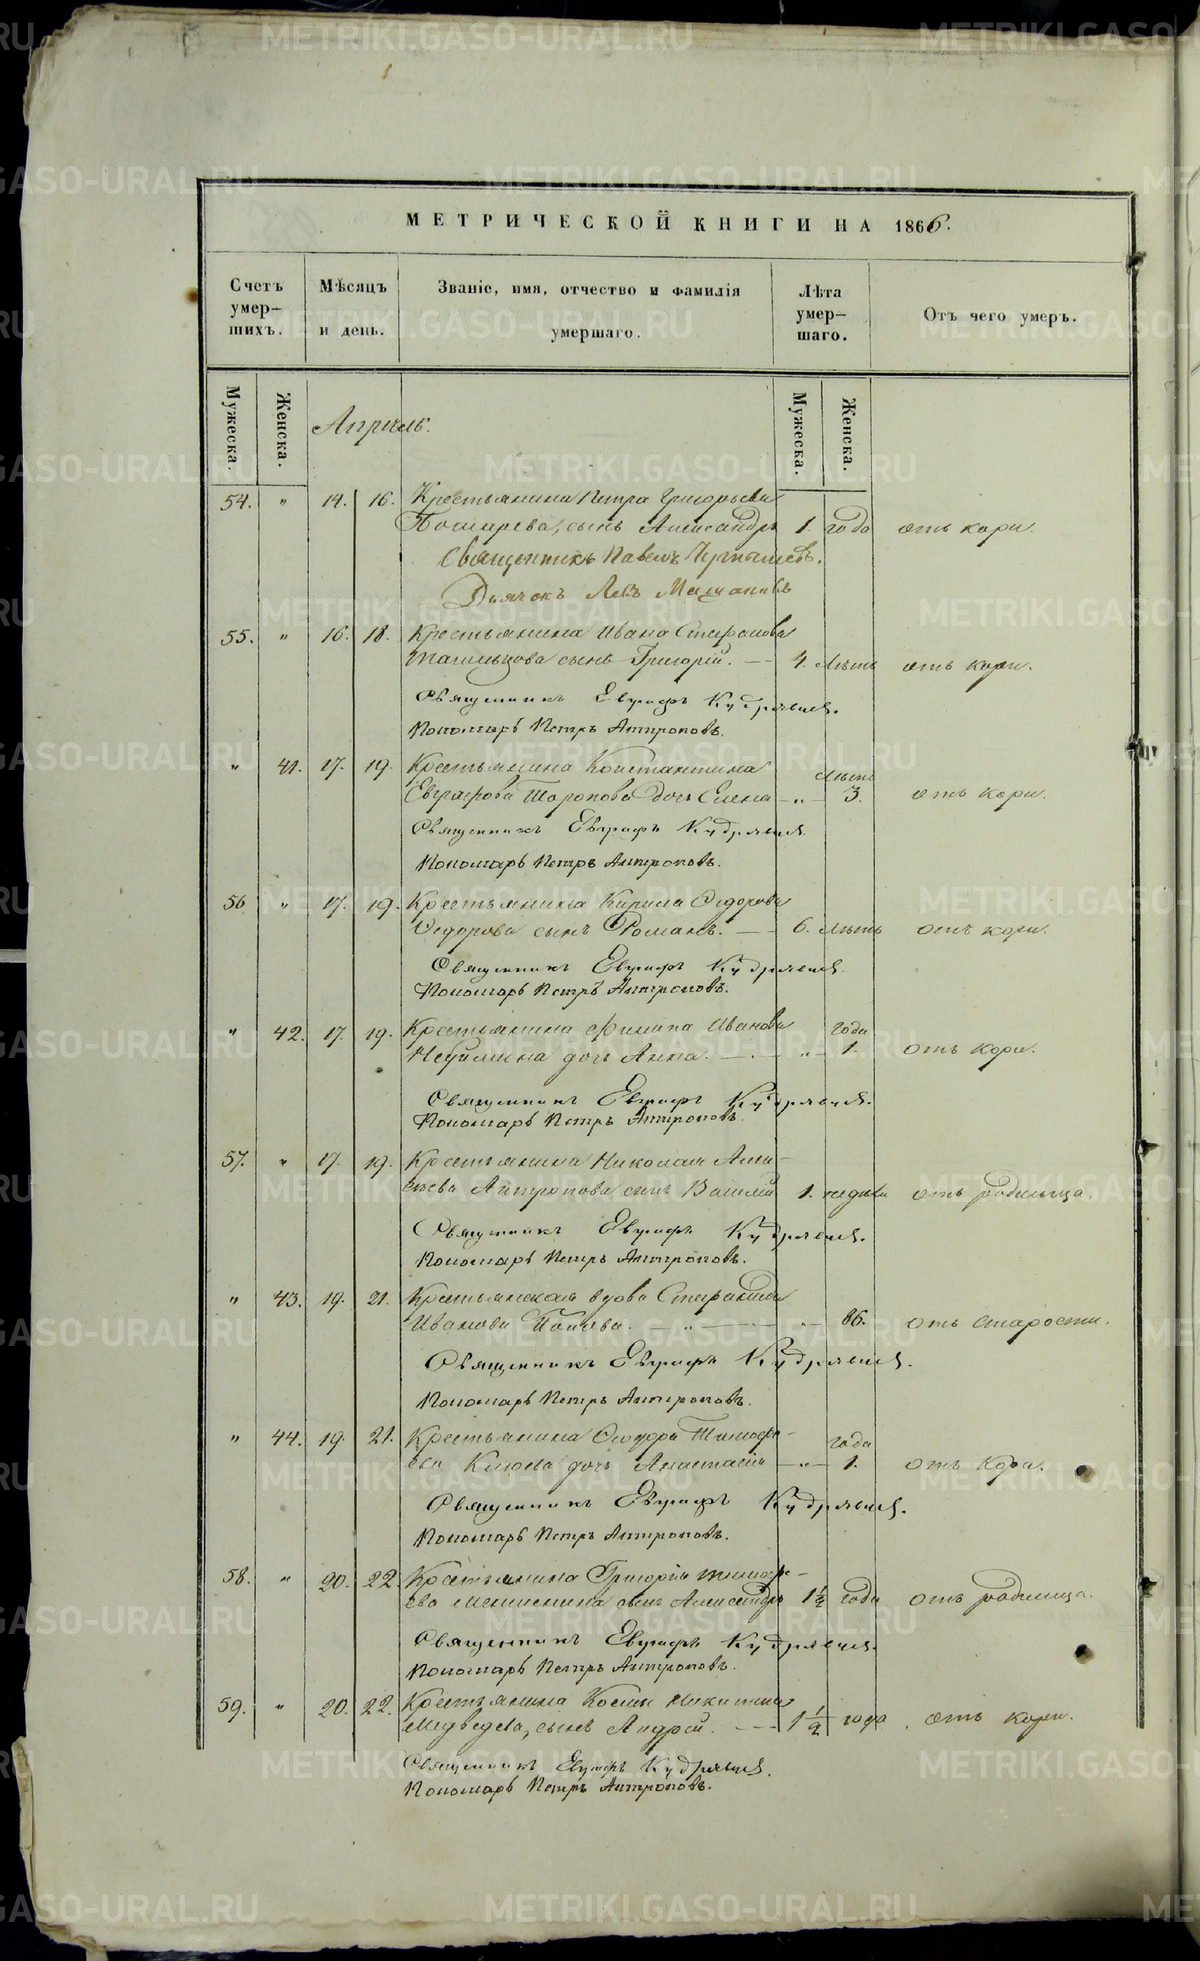 МЕТРИЧЕСКОЙ КНИГИ НА 1866.
Счетъ умер-шихъ.
Мѣсяцъ и день.
Званіе, имя, отчество и фамилія умершаго.
Лѣта умер-шаго.
Отъ чего умеръ.
Мужеска. Женска. Мужеска. Женска.
Апрѣль.
54. " 14. 16. Крестьянина Петра Григорьева
сынъ Александръ 1. года отъ кори.
Священникъ Павелъ
Дьячекъ Левъ
55. " 16. 18. Крестьянина Ивана Стефанова
сынъ Григорій. — 4. лѣтъ отъ кори.
Священникъ Евграфъ Кудрявцевъ.
Пономарь Петръ Антроповъ.
" 41. 17. 19. Крестьянина Константина лѣтъ
Евграфова Торопова дочь Елена — " — 3. отъ кори.
Священникъ Евграфъ Кудрявцевъ.
Пономарь Петръ Антроповъ.
56 " 17. 19. Крестьянина Кирила Ѳедорова
Ѳедорова сынъ Романъ. — 6. лѣтъ отъ кори.
Священникъ Евграфъ Кудрявцевъ.
Пономарь Петръ Антроповъ.
" 42. 17. 19. Крестьянина Филипа Иванова года
дочь Анна. — " — 1. отъ кори.
Священникъ Евграфъ Кудрявцевъ.
Пономарь Петръ Антроповъ.
57. " 17. 19. Крестьянина Николая Алек-
сѣева Антропова сынъ Василій 1. недѣли отъ родимца.
Священникъ Евграфъ Кудрявцевъ.
Пономарь Петръ Антроповъ.
" 43. 19. 21. Крестьянская вдова Стефанида
Иванова — " — 86. отъ старости.
Священникъ Евграфъ Кудрявцевъ.
Пономарь Петръ Антроповъ.
" 44. 19. 21. Крестьянина Ѳедора Тимофе- года
ева дочь Анастасія — " — 1. отъ кори.
Священникъ Евграфъ Кудрявцевъ.
Пономарь Петръ Антроповъ.
58. " 20. 22. Крестьянина Григорія Тимофе-
ева сынъ Александръ 1½ года отъ родимца.
Священникъ Евграфъ Кудрявцевъ.
Пономарь Петръ Антроповъ.
59. " 20. 22. Крестьянина Косьмы Никитина
Медведева, сынъ Андрей. — 1½ года отъ кори.
Священникъ Евграфъ Кудрявцевъ.
Пономарь Петръ Антроповъ.
METRIKI.GASO-URAL.RU